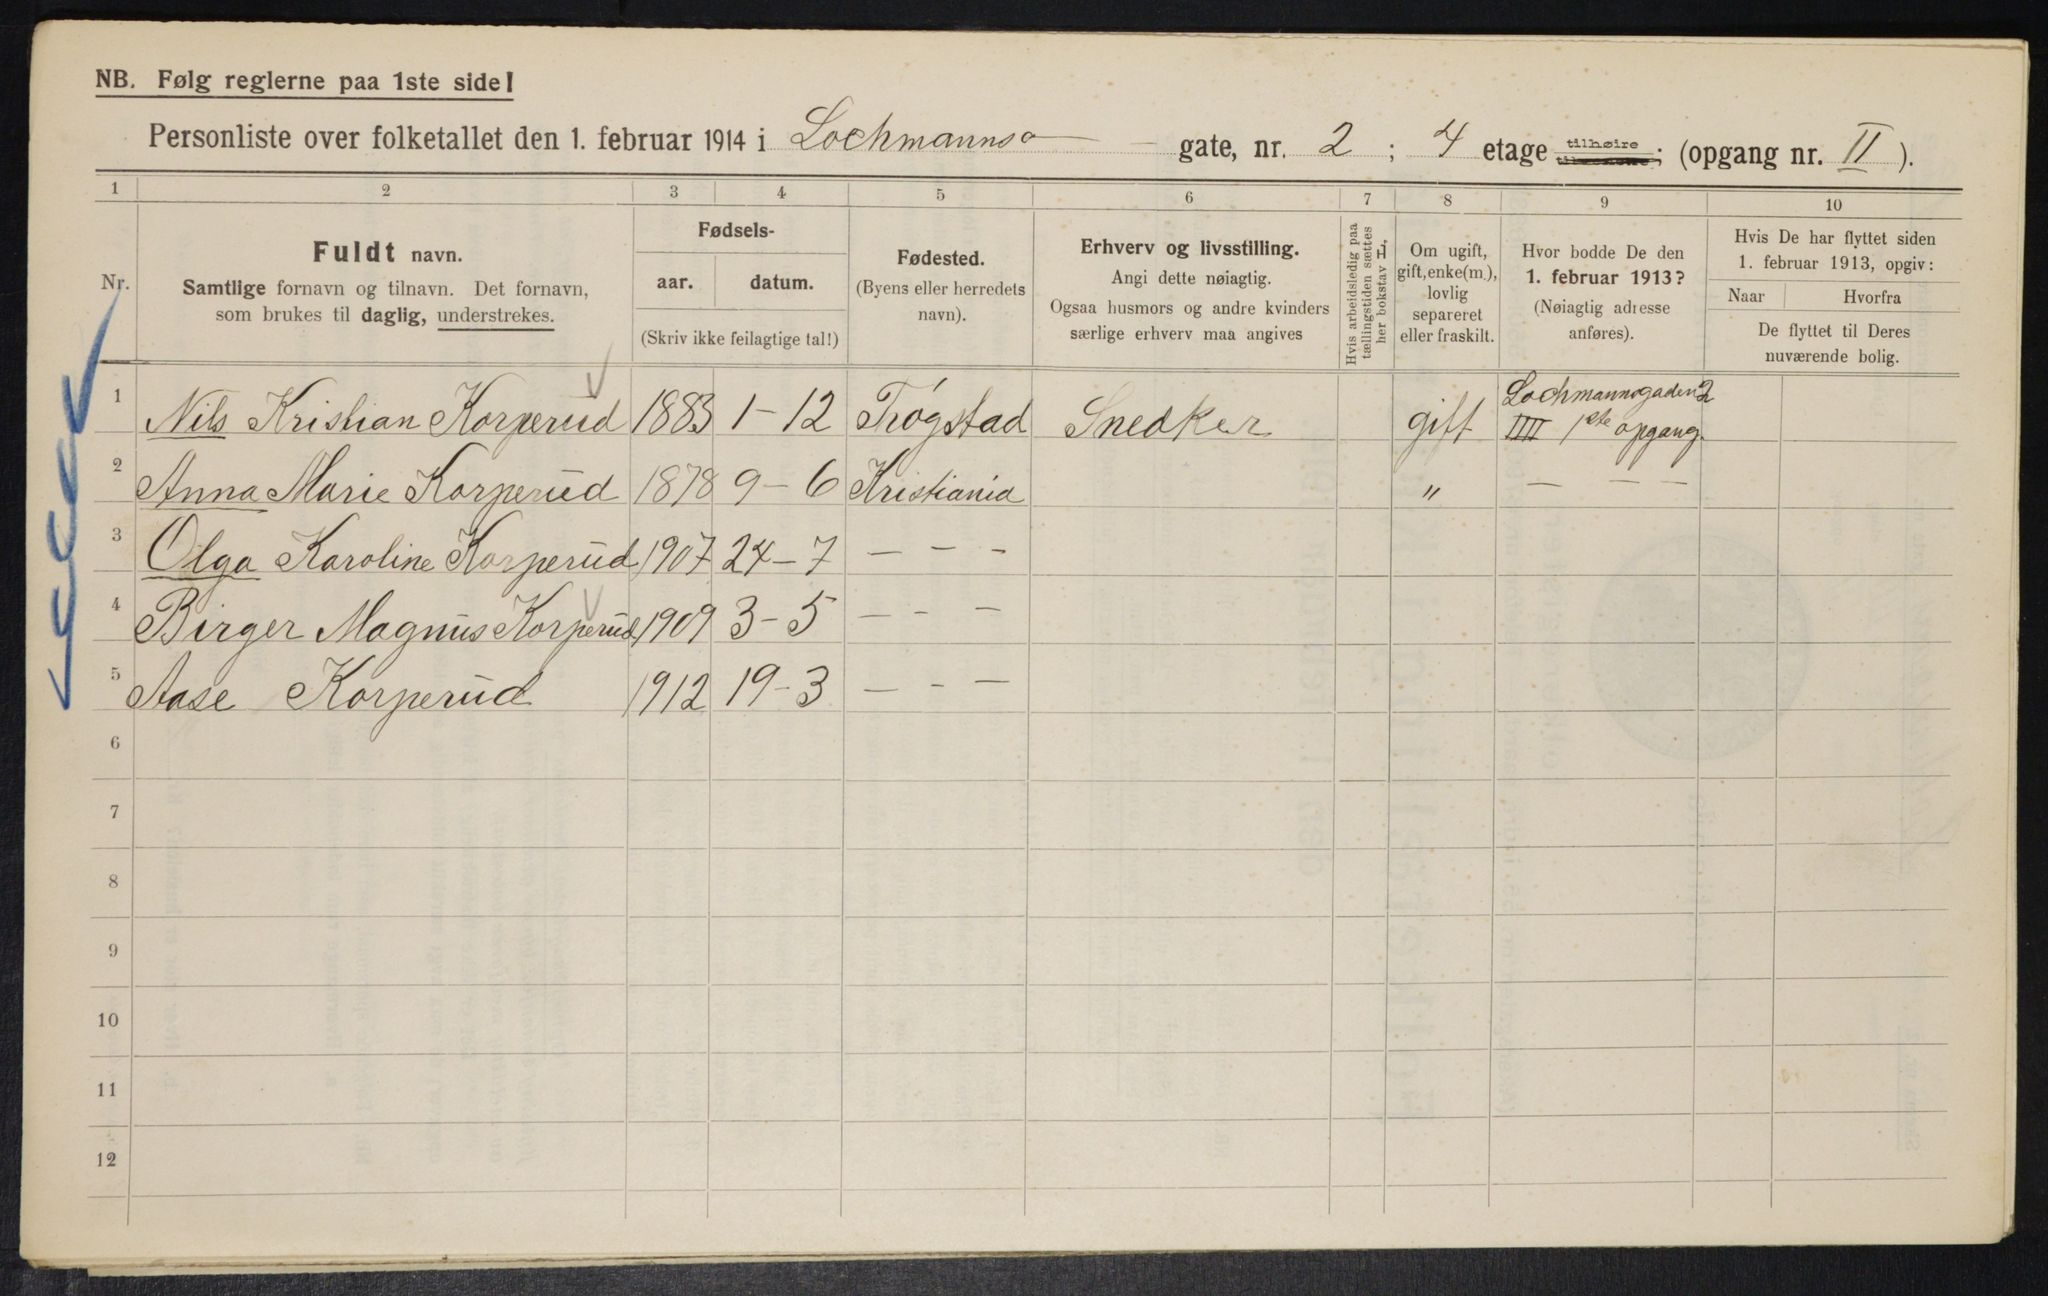 NB. Følg reglerne paa 1ste side!
Personliste over folketallet den 1. februar 1914 i Lochmanns gate, nr. 2 ; 4 etage tilhøire ; (opgang nr. II ).
1 2 3 4 5 6 7 8 9 10
Nr.
Fuldt navn.
Samtlige fornavn og tilnavn. Det fornavn,
som brukes til daglig, understrekes.
Fødsels-
aar. datum.
(Skriv ikke feilagtige tal!)
Fødested.
(Byens eller herredets
navn).
Erhverv og livsstilling.
Angi dette nøiagtig.
Ogsaa husmors og andre kvinders
særlige erhverv maa angives
Hvis arbeidsledig paa
tællingstiden sættes
her bokstav L.
Om ugift,
gift, enke(m.),
lovlig
separeret
eller fraskilt.
Hvor bodde De den
1. februar 1913?
(Nøiagtig adresse
anføres).
Hvis De har flyttet siden
1. februar 1913, opgiv:
Naar Hvorfra
De flyttet til Deres
nuværende bolig.
1 Nils Kristian Korperud 1883 1-12 Trógstad Snedker gift Lochmannsgaden 2
IIII 1ste opgang.
2 Anna Marie Korperud 1878 9-6 Kristiania " — — —
3 Olga Karoline Korperud 1907 24-7 — — —
4 Birger Magnus Korperud 1909 3-5 — — —
5 Aase Korperud 1912 19-3 — — —
6
7
8
9
10
11
12